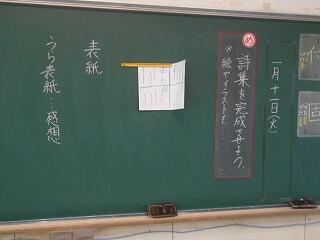 一月十一日(火)
め
詩集を完成させよう。
※絵やイラストも…
表紙
うら表紙…感想
固